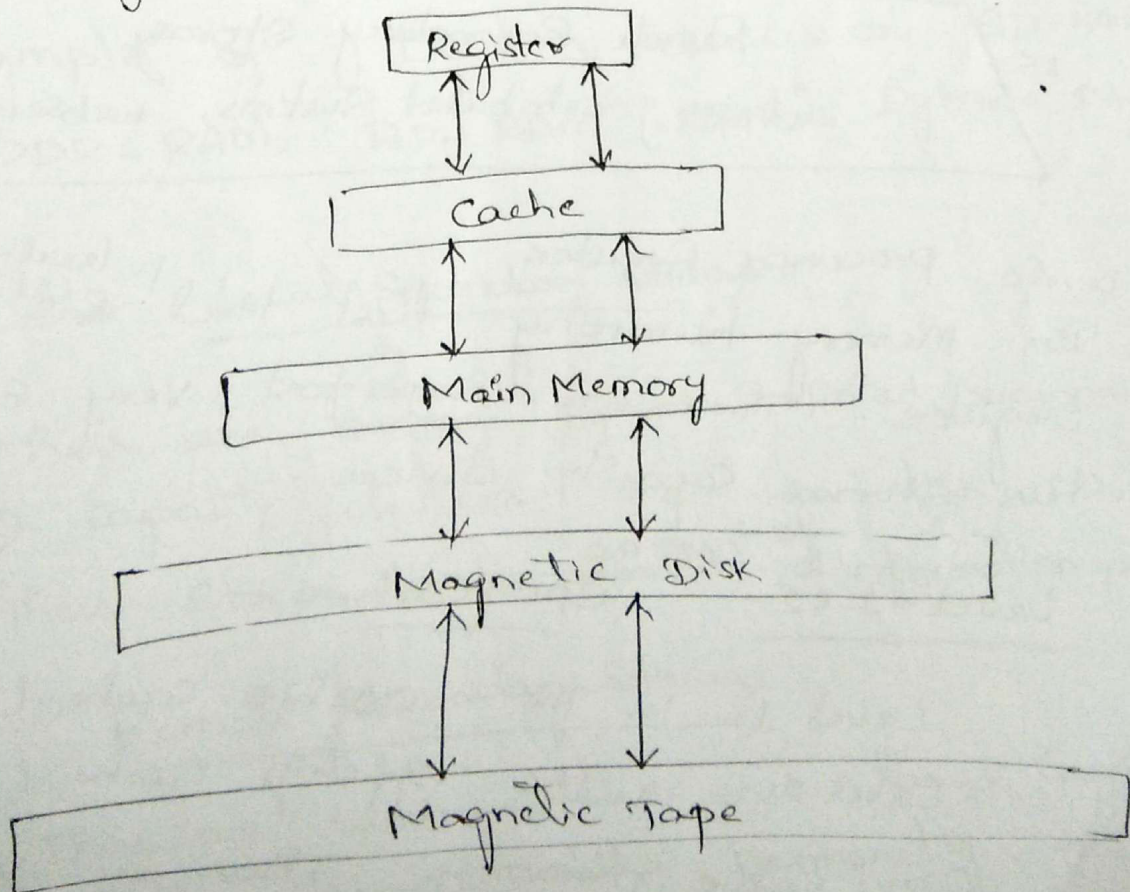 Register
Cache
Main Memory
Magnetic Disk
Magnetic Tape